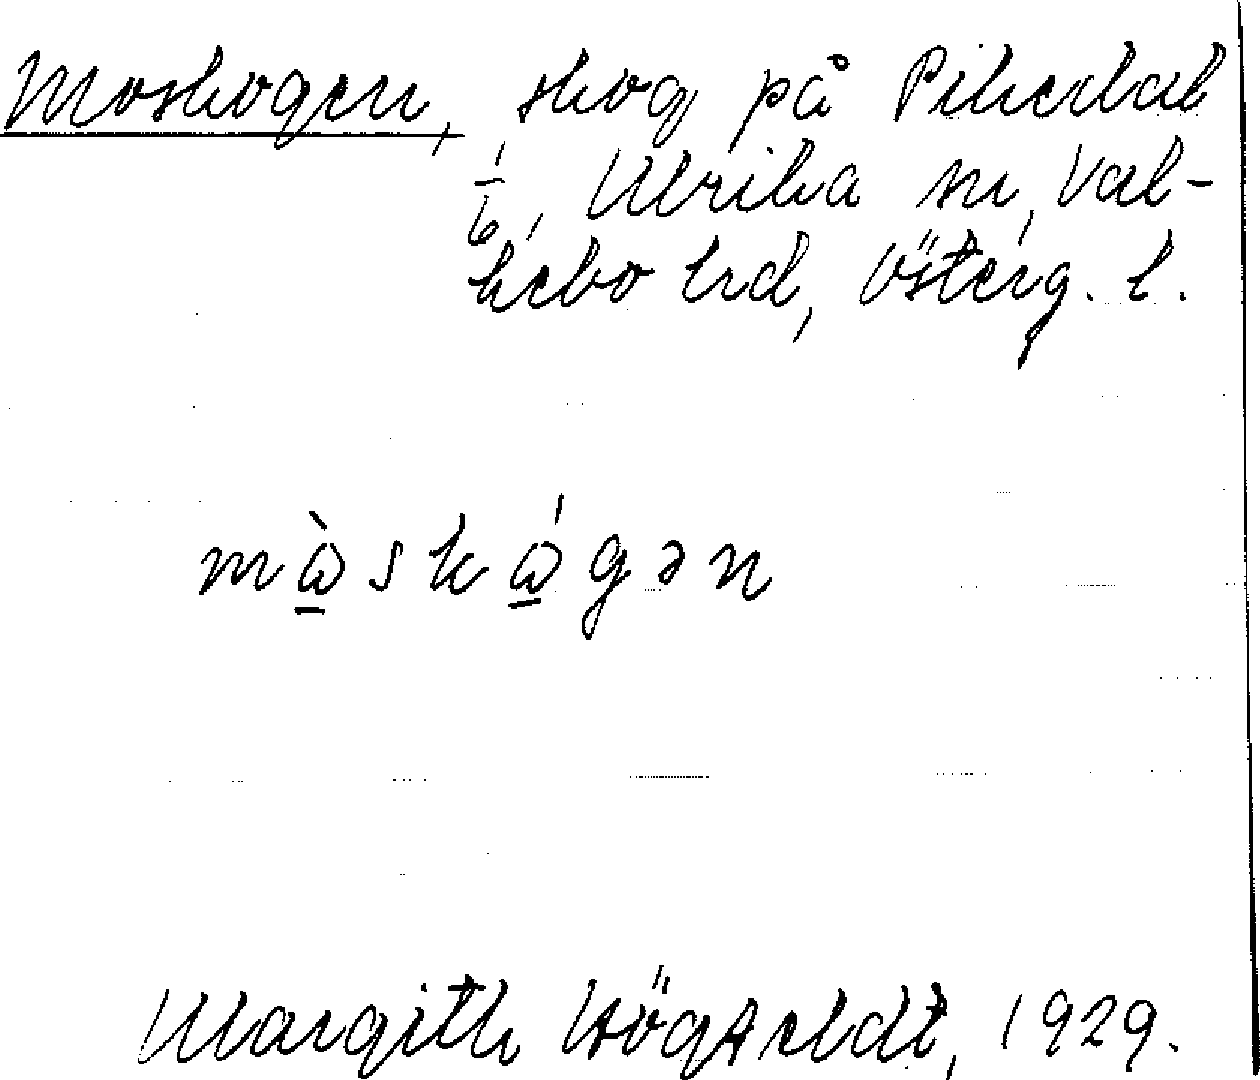 Moskogen, skog på Pikedal
1/6, Ulrika sn, Val-
kebo hd, Österg. l.
mɷ̀skɷ́gən
Margith Högfeldt, 1929.